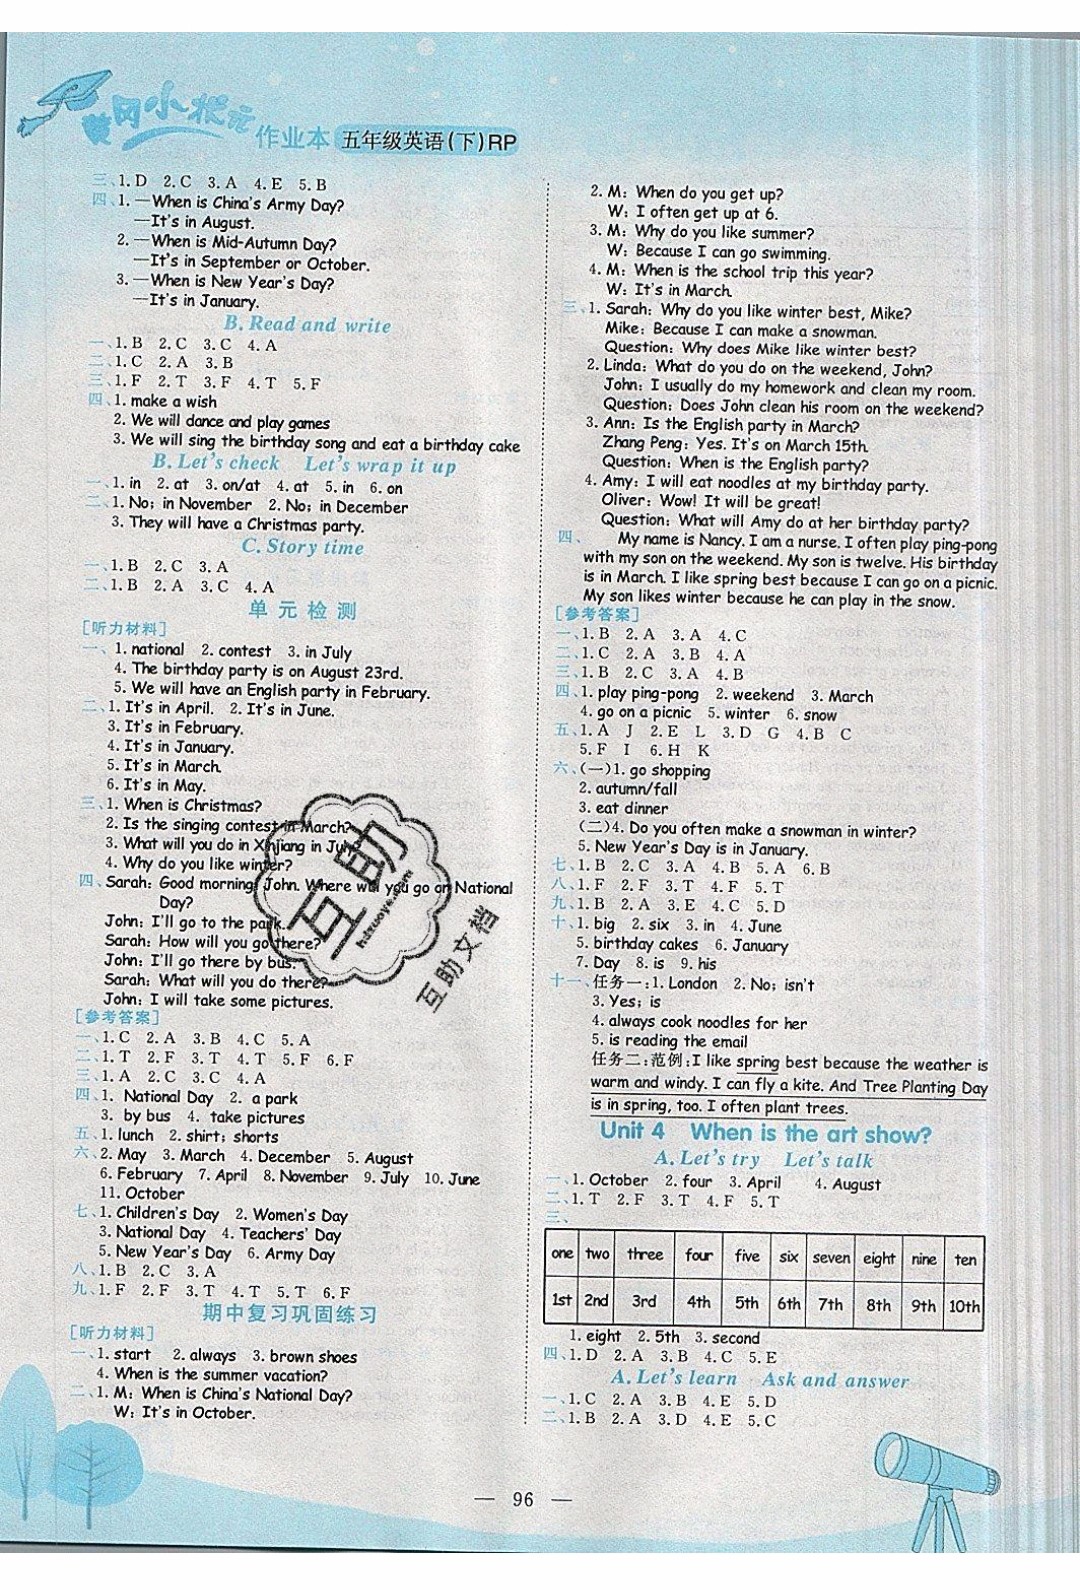 黄冈小状元 作业本 五年级英语(下)RP
三、1. D 2. C 3. A 4. E 5. B
四、1. —When is China's Army Day?
—It's in August.
2. —When is Mid-Autumn Day?
—It's in September or October.
3. —When is New Year's Day?
—It's in January.
B. Read and write
一、1. B 2. C 3. C 4. A
二、1. C 2. A 3. B
三、1. F 2. T 3. F 4. T 5. F
四、1. make a wish
2. We will dance and play games
3. We will sing the birthday song and eat a birthday cake
B. Let's check Let's wrap it up
一、1. in 2. at 3. on/at 4. at 5. in 6. on
二、1. No; in November 2. No; in December
3. They will have a Christmas party.
C. Story time
一、1. B 2. C 3. A
二、1. B 2. A 3. C 4. A
单元检测
[听力材料]
一、1. national 2. contest 3. in July
4. The birthday party is on August 23rd.
5. We will have an English party in February.
二、1. It's in April. 2. It's in June.
3. It's in February.
4. It's in January.
5. It's in March.
6. It's in May.
三、1. When is Christmas?
2. Is the singing contest in March?
3. What will you do in Xinjiang in July?
4. Why do you like winter?
四、Sarah: Good morning, John. Where will you go on National
Day?
John: I'll go to the park.
Sarah: How will you go there?
John: I'll go there by bus.
Sarah: What will you do there?
John: I will take some pictures.
[参考答案]
一、1. C 2. A 3. B 4. C 5. A
二、1. T 2. F 3. T 4. T 5. F 6. F
三、1. A 2. C 3. C 4. A
四、1. National Day 2. a park
3. by bus 4. take pictures
五、1. lunch 2. shirt; shorts
六、2. May 3. March 4. December 5. August
6. February 7. April 8. November 9. July 10. June
11. October
七、1. Children's Day 2. Women's Day
3. National Day 4. Teachers' Day
5. New Year's Day 6. Army Day
八、1. B 2. C 3. A
九、1. F 2. F 3. T 4. T 5. T 6. F
期中复习巩固练习
[听力材料]
一、1. start 2. always 3. brown shoes
4. When is the summer vacation?
二、1. M: When is China's National Day?
W: It's in October.
2. M: When do you get up?
W: I often get up at 6.
3. M: Why do you like summer?
W: Because I can go swimming.
4. M: When is the school trip this year?
W: It's in March.
三、1. Sarah: Why do you like winter best, Mike?
Mike: Because I can make a snowman.
Question: Why does Mike like winter best?
2. Linda: What do you do on the weekend, John?
John: I usually do my homework and clean my room.
Question: Does John clean his room on the weekend?
3. Ann: Is the English party in March?
Zhang Peng: Yes. It's on March 15th.
Question: When is the English party?
4. Amy: I will eat noodles at my birthday party.
Oliver: Wow! It will be great!
Question: What will Amy do at her birthday party?
四、 My name is Nancy. I am a nurse. I often play ping-pong
with my son on the weekend. My son is twelve. His birthday
is in March. I like spring best because I can go on a picnic.
My son likes winter because he can play in the snow.
[参考答案]
一、1. B 2. A 3. A 4. C
二、1. C 2. A 3. B 4. A
三、1. B 2. C 3. A 4. B
四、1. play ping-pong 2. weekend 3. March
4. go on a picnic 5. winter 6. snow
五、1. A J 2. E L 3. D G 4. B C
5. F I 6. H K
六、(一)1. go shopping
2. autumn/fall
3. eat dinner
(二)4. Do you often make a snowman in winter?
5. New Year's Day is in January.
七、1. B 2. C 3. A 4. B 5. A 6. B
八、1. F 2. F 3. T 4. F 5. T
九、1. B 2. A 3. E 4. C 5. D
十、1. big 2. six 3. in 4. June
5. birthday cakes 6. January
7. Day 8. is 9. his
十一、任务一:1. London 2. No; isn't
3. Yes; is
4. always cook noodles for her
5. is reading the email
任务二:范例:I like spring best because the weather is
warm and windy. I can fly a kite. And Tree Planting Day
is in spring, too. I often plant trees.
Unit 4 When is the art show?
A. Let's try Let's talk
一、1. October 2. four 3. April 4. August
二、1. T 2. F 3. T 4. F 5. T
三、
one two three four five six seven eight nine ten
1st 2nd 3rd 4th 5th 6th 7th 8th 9th 10th
1. eight 2. 5th 3. second
四、1. D 2. A 3. B 4. C 5. E
A. Let's learn Ask and answer
一、1. C 2. A 3. B 4. E 5. D
二、1. B 2. A 3. D 4. E 5. C
互助
hdzuoye.com
互助文档
— 96 —